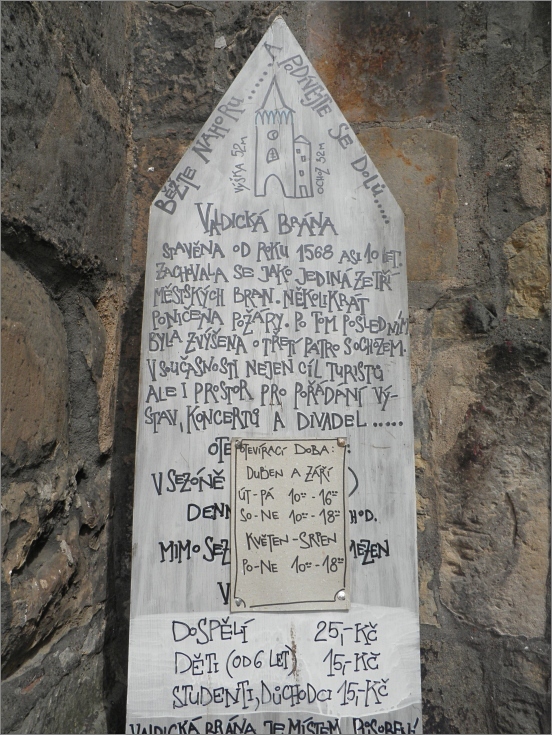 BĚŽTE NAHORU ..... A PODÍVEJTE SE DOLŮ.....
VÝŠKA 52M
OCHOZ 32M
VALDICKÁ BRÁNA
STAVĚNA OD ROKU 1568 ASI 10 LET.
ZACHOVALA SE JAKO JEDINÁ ZE TŘÍ
MĚSTSKÝCH BRAN. NĚKOLIKRÁT
PONIČENA POŽÁRY. PO TOM POSLEDNÍM
BYLA ZVÝŠENA O TŘETÍ PATRO S OCHOZEM.
V SOUČASNOSTI NEJEN CÍL TURISTŮ
ALE I PROSTOR PRO POŘÁDÁNÍ VÝ-
STAV, KONCERTŮ A DIVADEL .....
OTE
V SEZÓNĚ )
DENN HOD.
MIMO SEZ
OTEVÍRACÍ DOBA:
DUBEN A ZÁŘÍ
ÚT-PÁ 10⁰⁰ - 16⁰⁰
SO-NE 10⁰⁰ - 18⁰⁰
KVĚTEN - SRPEN
PO-NE 10⁰⁰ - 18⁰⁰
DOSPĚLÍ 25,-Kč
DĚTI (OD 6 LET) 15,-Kč
STUDENTI, DŮCHODCI 15,-Kč
VALDICKÁ BRÁNA JE MÍSTEM PŮSOBENÍ